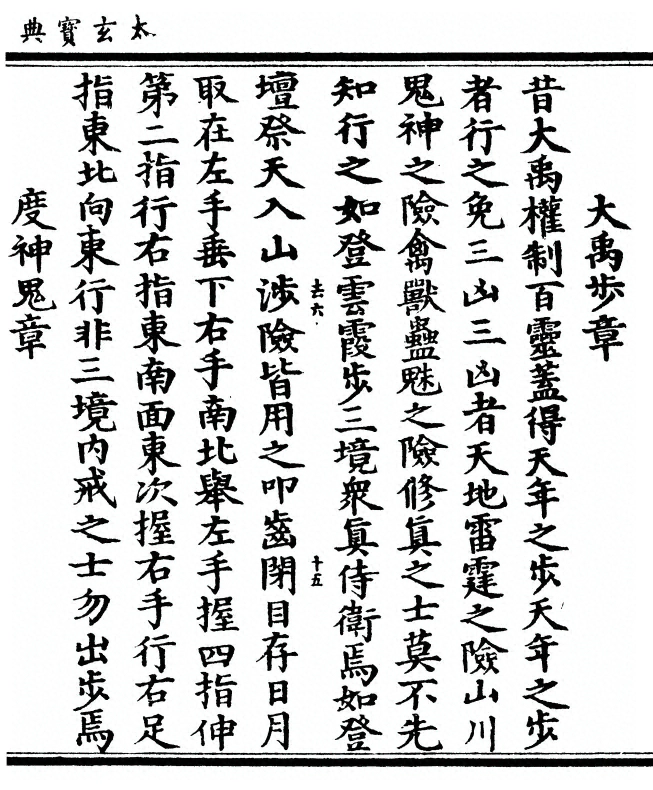 太玄寶典
大禹步章
昔大禹權制百靈蓋得天年之步天年之步
者行之免三凶三凶者天地雷霆之險山川
鬼神之險禽獸蠱魅之險修真之士莫不先
知行之如登雲霞步三境衆真侍衛焉如登
壇祭天入山涉險皆用之叩齒閉目存日月
去六
十五
取在左手垂下右手南北舉左手握四指伸
第二指行右指東南面東次握右手行右足
指東北向東行非三境内戒之士勿出步焉
度神鬼章